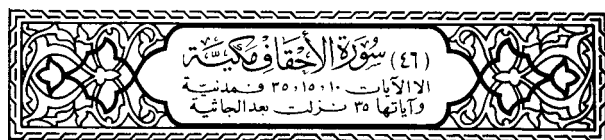 (٤٦) سُورَةُ الأَحْقَافِ مَكِيَّة
الا الآيات ١٠ و ١٥ و ٣٥ فمدنية
وآياتها ٣٥ نزلت بعد الجاثية